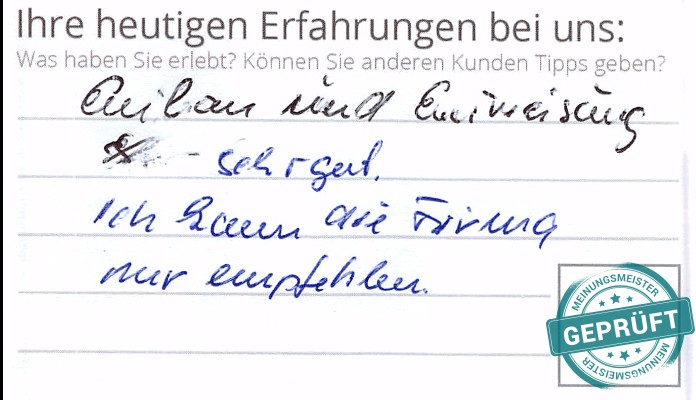 Ihre heutigen Erfahrungen bei uns:
Was haben Sie erlebt? Können Sie anderen Kunden Tipps geben?
Einbau und Einweisung
- sehr gut.
Ich kann die Firma
nur empfehlen.
MEINUNGSMEISTER
GEPRÜFT
MEINUNGSMEISTER